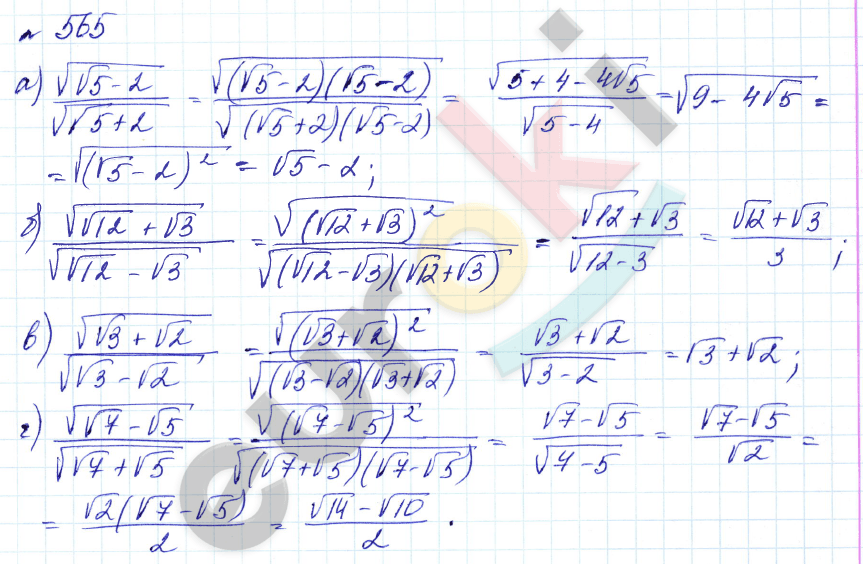 № 565
а) √(√5 - 2) / √(√5 + 2) = √((√5 - 2)(√5 - 2)) / √((√5 + 2)(√5 - 2)) = √(5 + 4 - 4√5) / √(5 - 4) = √(9 - 4√5) =
= √((√5 - 2)²) = √5 - 2;
б) √(√12 + √3) / √(√12 - √3) = √((√12 + √3)²) / √((√12 - √3)(√12 + √3)) = (√12 + √3) / √(12 - 3) = (√12 + √3) / 3;
в) √(√3 + √2) / √(√3 - √2) = √((√3 + √2)²) / √((√3 - √2)(√3 + √2)) = (√3 + √2) / √(3 - 2) = √3 + √2;
г) √(√7 - √5) / √(√7 + √5) = √((√7 - √5)²) / √((√7 + √5)(√7 - √5)) = (√7 - √5) / √(7 - 5) = (√7 - √5) / √2 =
= √2(√7 - √5) / 2 = (√14 - √10) / 2 .
euroki